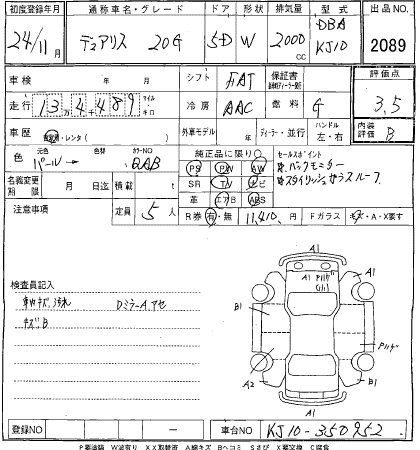 初度登録年月 通称車名・グレード ドア 形状 排気量 型式 出品NO
24/11月 デュアリス 20G 5D W 2000cc DBA KJ10 2089
車検 年 月 シフト FAT 保証書 評価点 3.5
走行 13万4千489 マイル キロ 冷房 AAC 燃料 G 内装評価 B
車歴 自家用・レンタ( ) 外車モデル 年 ディーラー・並行 ハンドル 左・右
色 元色 パール→ 色替 カラーNO QAB 純正品に限り○ セールスポイント
PS PW AW ☆バックモニター
名義変更期限 月 日迄 積載 t SR TV ナビ ☆スタイリッシュガラスルーフ
革 エアB ABS
注意事項 定員 5人 R券 有・無 11,410円 Fガラス キズ・A・X要す
検査員記入
車内キズ汚れ DミラーAアセ
キズB
A1
A1 Pリハゲ
A1
B1
A2
B1
A1
登録NO 車台NO KJ10-350952
P要塗装 W波有り XX取替済 A線キズ Bヘコミ Sさび X要交換 C腐食